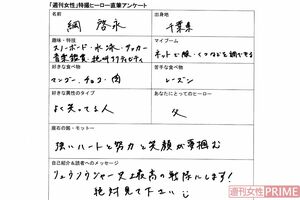 「週刊女性」特撮ヒーロー直筆アンケート
名前
綱 啓永
出身地
千葉県
趣味・特技
スノーボード・水泳・サッカー
音楽鑑賞・
マイブーム
ネットで服・くつなどを調べてる
好きな食べ物
マンゴー、チョコ・肉
苦手な食べ物
レーズン
好きな異性のタイプ
よく笑ってる人
あなたにとってのヒーロー
父
座右の銘・モットー
強いハートと努力と笑顔が夢掴む
自己紹介＆読者へのメッセージ
リュウソウジャー史上最高の戦隊にします！
絶対見て下さい
週刊女性PRIME